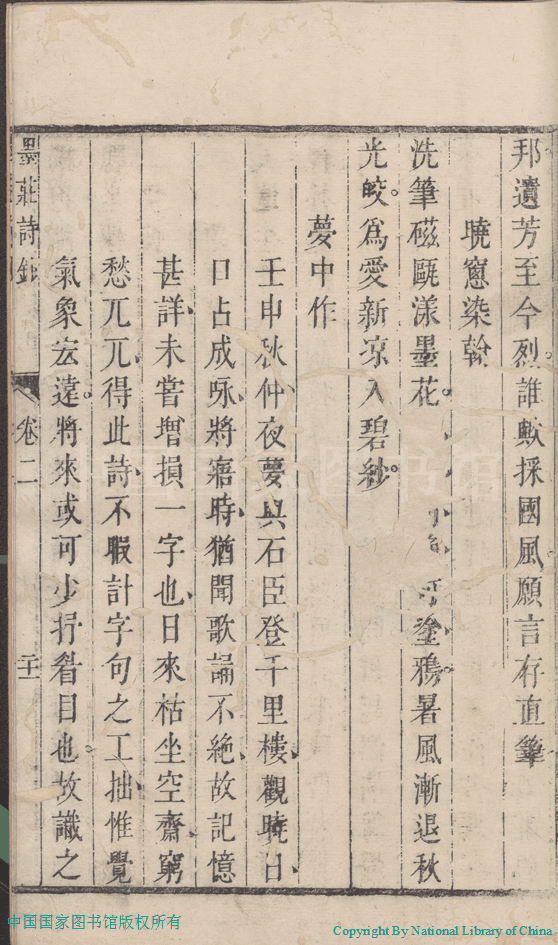 邦遺芳至今烈誰歟採國風願言存直筆
曉窻染翰
洗筆磁甌漾墨花塗鴉暑風漸退秋
光皎爲愛新凉入碧紗
夢中作
壬申秋仲夜夢與石臣登千里樓觀曉日
口占成咏將寤時猶聞歌誦不絶故記憶
甚詳未嘗增損一字也日來枯坐空齋窮
愁兀兀得此詩不暇計字句之工拙惟覺
氣象宏遠將來或可少拧眉目也故識之
墨莊詩鈔
卷二
二十一
中国国家图书馆版权所有
Copyright By National Library of China